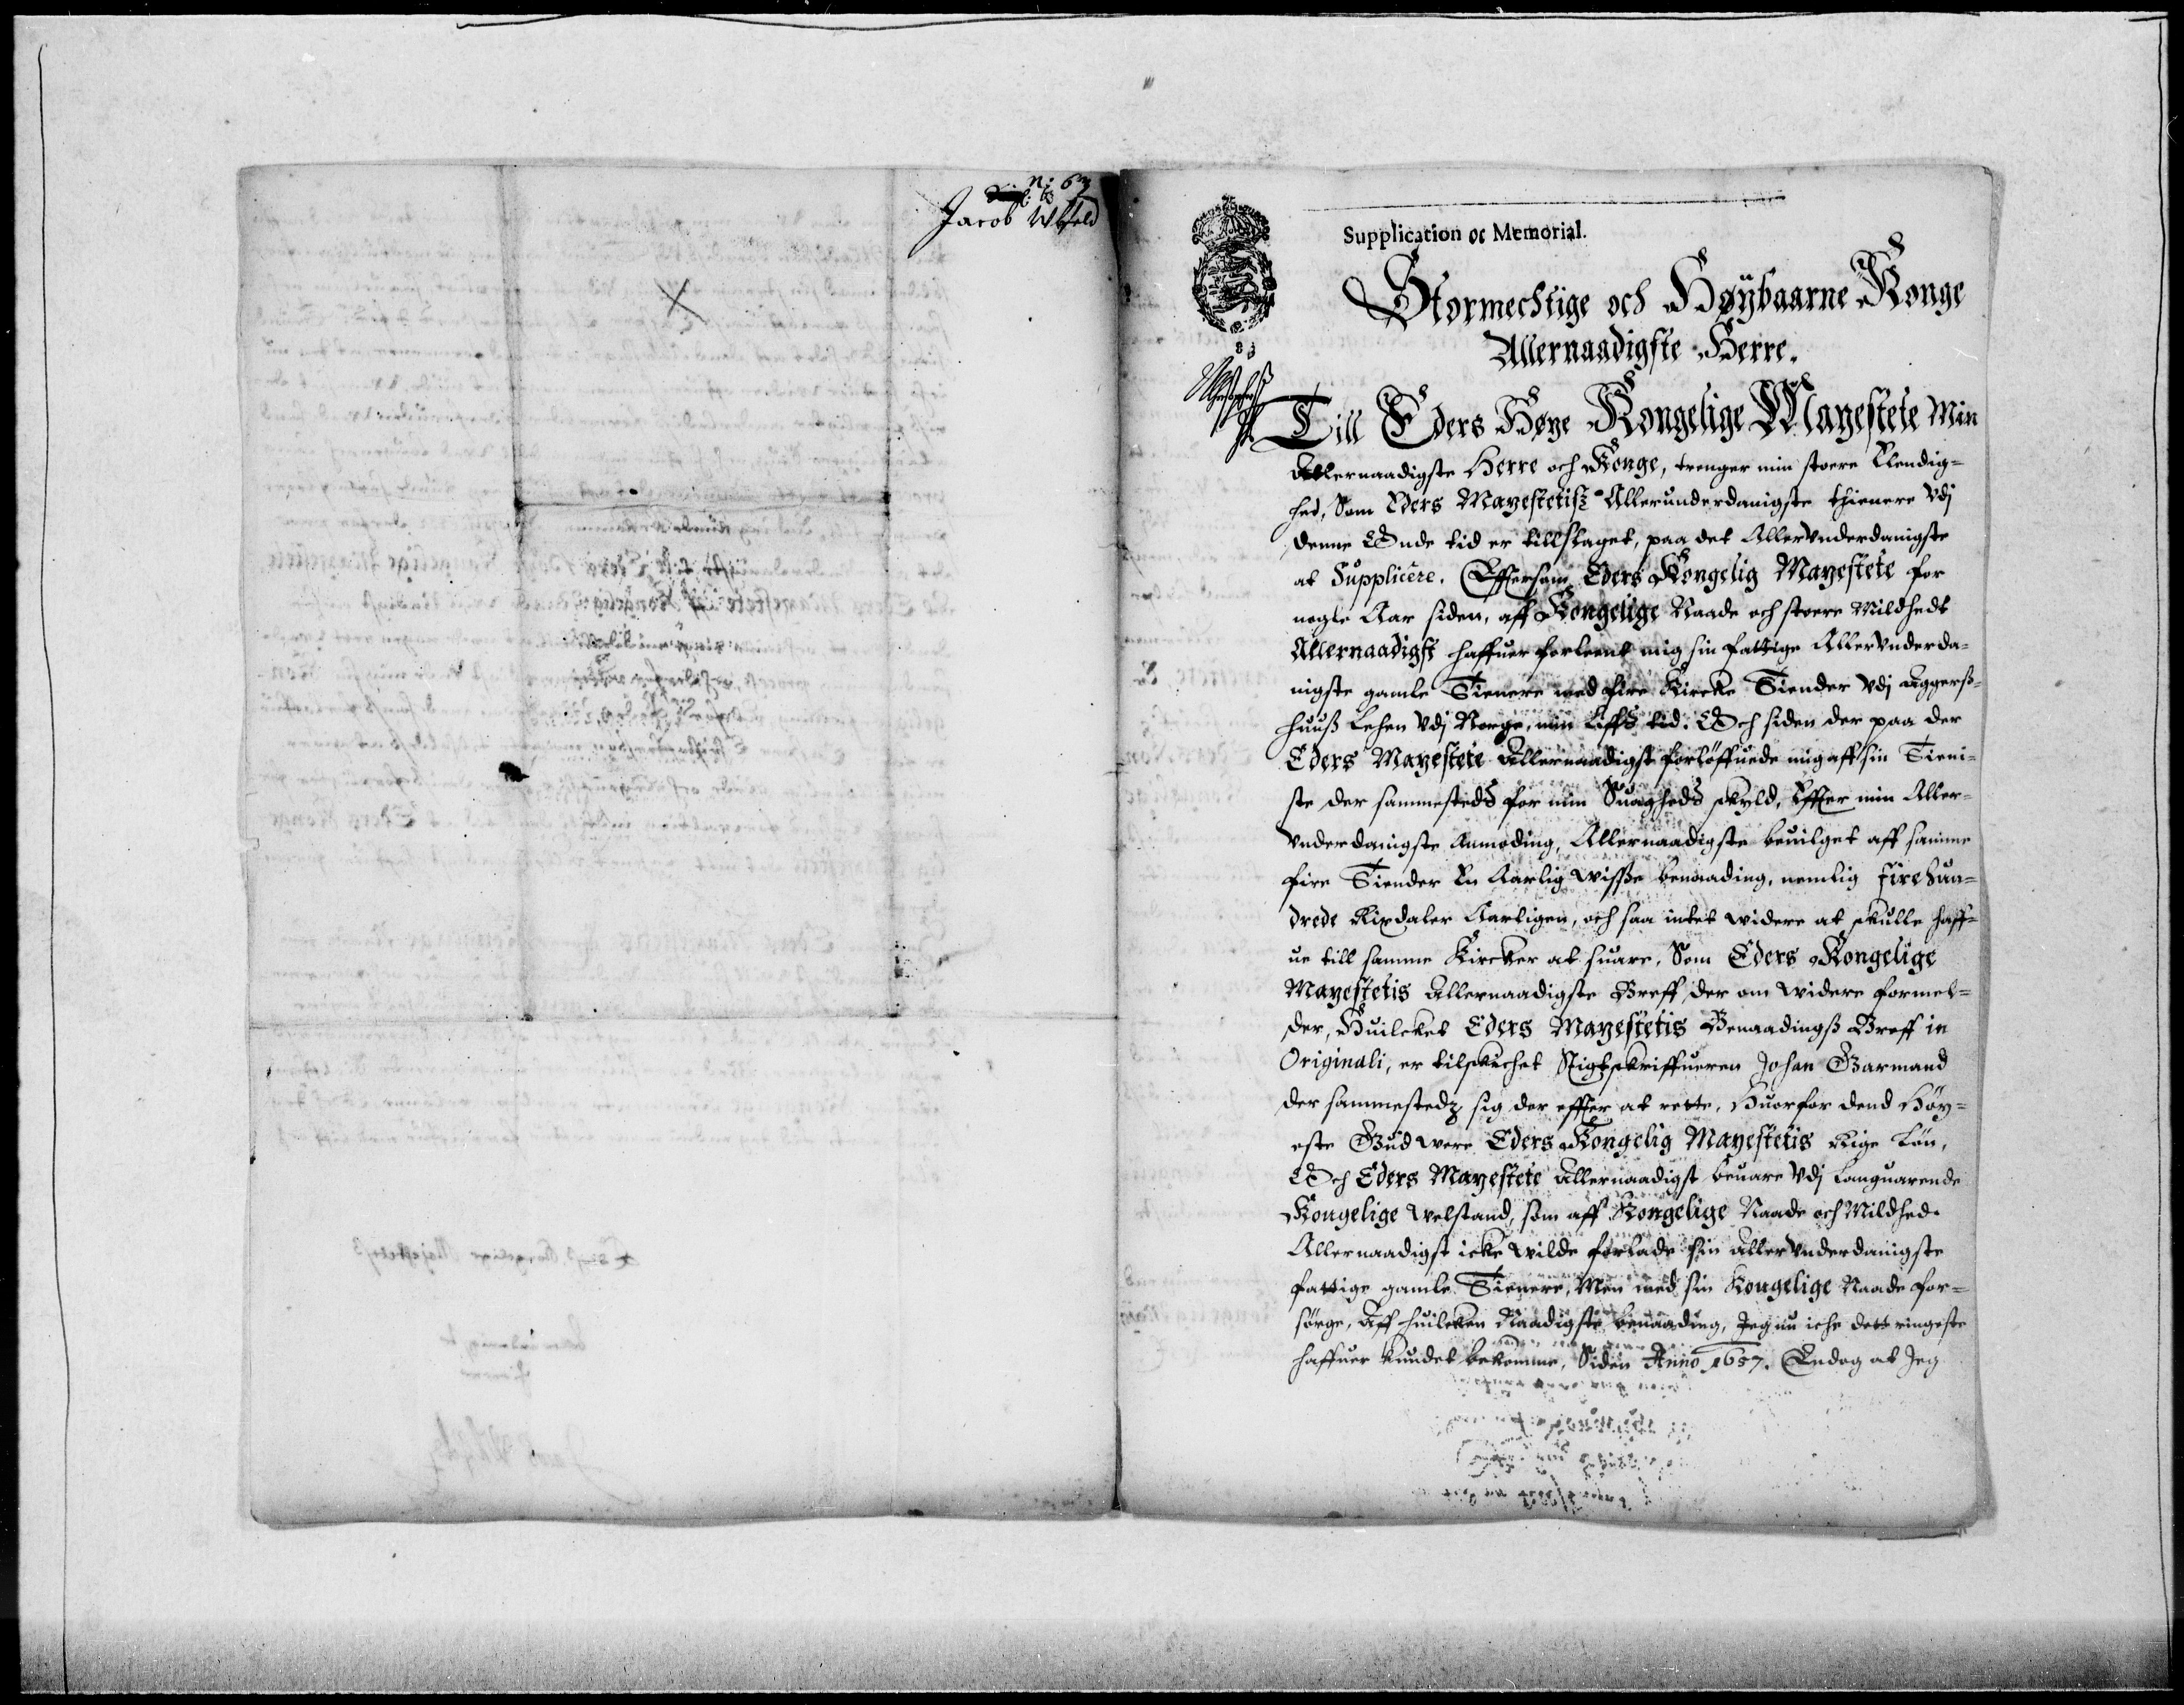 n: 63
Jacob Wlfeld
Supplication oc Memorial.
Stormechtige och Høÿbaarne Konge
Allernaadigste Herre.
Till Eders Høye Kongelige Mayestete Min
Allernaadigste Herre och Konge, trenger min stoere Elendig=
hed, Som Eders Mayestetisz Allerunderdanigste thienere Vdj
denne Onde tid er tillslaget, paa det Allervnderdanigste
at Supplicere. Effersom Eders Kongelig Mayestete for
nogle Aar siden, aff Kongelige Naade och stoere Mildheds
Allernaadigst haffuer forleent mig sin fattige Allervnderda=
nigste gamle Tienere med fire Kircke Tiender vdj Aggersz=
huusz Lehen vdj Norge, min Liffs tid. Och siden der paa der
Eders Mayestete Allernaadigst forlöffuede mig aff sin Tieni=
ste der sammesteds for min Suagheds skyld, Effter min Aller=
vnderdanigste Anmoding, Allernaadigste beuilget aff samme
fire Tiender En Aarlig wisse benaading, nemlig fire Hun=
drede Rixdaler Aarligen, och saa intet widere at skulle haff=
ue till samme Kircker at suare, Som Eders Kongelige
Mayestetis Allernaadigste Breff, der om widere formel=
der, Huilcket Eders Mayestetis Benaadingsz Breff in
Originali, er tilskichet Rigsskriffueren Johan Garmand
der sammestedz sig der effter at rette. Huorfor dend Höy=
este Gud were Eders Kongelig Mayestetis Rige Lön,
Och Eders Mayestete Allernaadigst beuare vdj Languarende
Kongelige Velstand, som aff Kongelige Naade och Mildhed.
Allernaadigst icke wilde forlade sin allervnderdanigste
fattige gamle Tienere, Men med sin Kongelige Naade for=
sörge, Aff huilcken Naadigste benaading, Jeg nu iche dett ringeste
haffuer kundet bekomme, Siden Anno 1657. Endog at Jeg